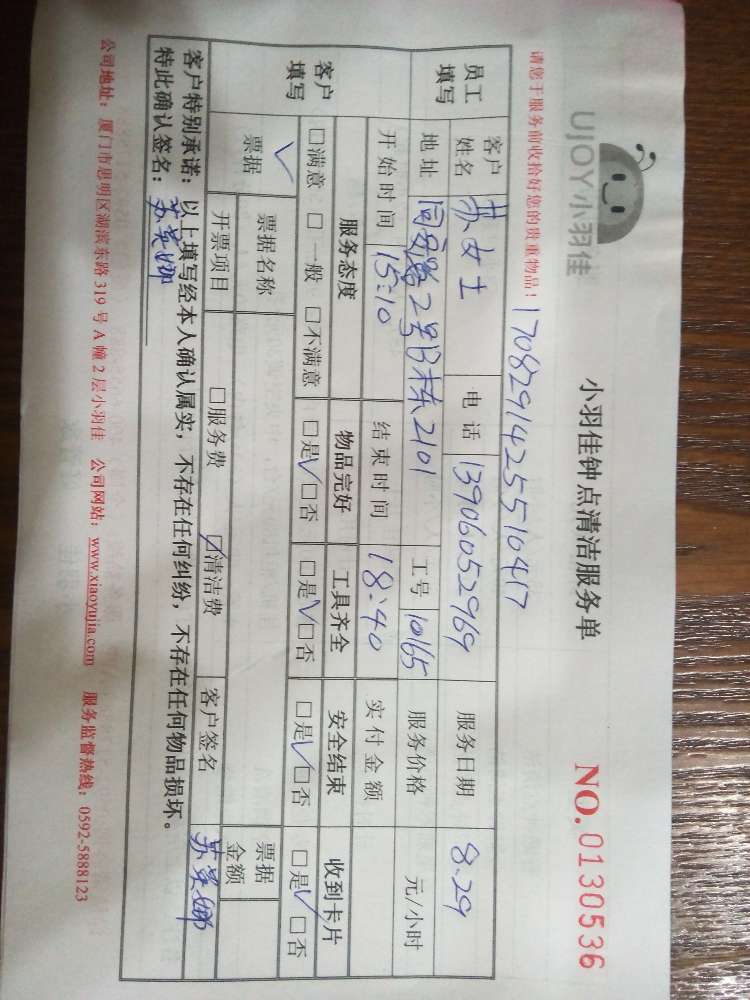 UJOY小羽佳
小羽佳钟点清洁服务单
NO.0130536
请您于服务前收拾好您的贵重物品！
17082914255510417
员工填写 客户姓名 苏女士 电话 13906052969 服务日期 8.29
地址 同安路2号B栋2101 工号 10165 服务价格 元/小时
开始时间 15:10 结束时间 18:40 实付金额
客户填写 服务态度 物品完好 工具齐全 安全结束 收到卡片
□满意 □一般 □不满意 □是√□否 □是√□否 □是√□否 □是√□否
√票据 票据名称 票据金额
开票项目 □服务费 ☑清洁费 客户签名 苏英娜
客户特别承诺：以上填写经本人确认属实，不存在任何纠纷，不存在任何物品损坏。
特此确认签名：苏英娜
公司地址：厦门市思明区湖滨东路319号A幢2层小羽佳 公司网站：www.xiaoyujia.com 服务监督热线：0592-5888123